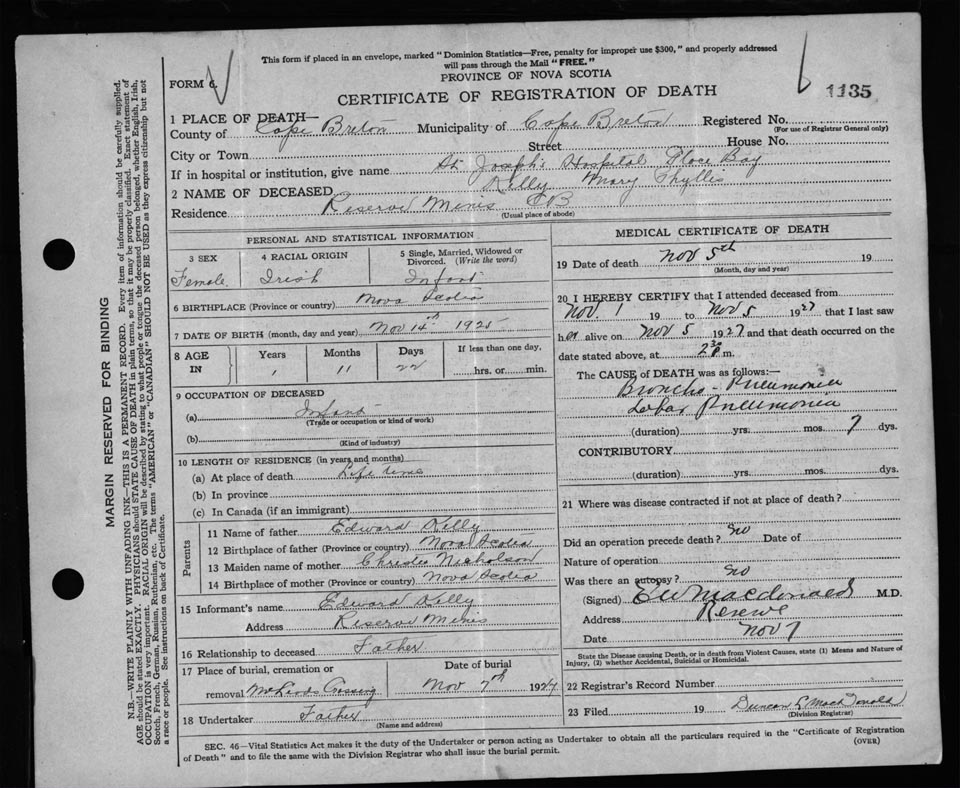 This form if placed in an envelope, marked "Dominion Statistics—Free, penalty for improper use $300," and properly addressed
will pass through the Mail "FREE."
PROVINCE OF NOVA SCOTIA
FORM 6.
CERTIFICATE OF REGISTRATION OF DEATH
1135
1 PLACE OF DEATH—
County of Cape Breton Municipality of Cape Breton Registered No.
(For use of Registrar General only)
City or Town Street House No.
If in hospital or institution, give name St. Joseph's Hospital Glace Bay
2 NAME OF DECEASED Kelly Mary Phyllis
Residence Reserve Mines CB
(Usual place of abode)
PERSONAL AND STATISTICAL INFORMATION
3 SEX
Female
4 RACIAL ORIGIN
Irish
5 Single, Married, Widowed or Divorced. (Write the word)
Infant
6 BIRTHPLACE (Province or country) Nova Scotia
7 DATE OF BIRTH (month, day and year) Nov 14th 1925
8 AGE IN
Years Months Days If less than one day,
1 11 22 hrs. or min.
9 OCCUPATION OF DECEASED
(a) Infant
(Trade or occupation or kind of work)
(b)
(Kind of industry)
10 LENGTH OF RESIDENCE (in years and months)
(a) At place of death Life time
(b) In province
(c) In Canada (if an immigrant)
Parents
11 Name of father Edward Kelly
12 Birthplace of father (Province or country) Nova Scotia
13 Maiden name of mother Nicholson
14 Birthplace of mother (Province or country) Nova Scotia
15 Informant's name Edward Kelly
Address Reserve Mines
16 Relationship to deceased Father
17 Place of burial, cremation or Date of burial
removal Crossing Nov 7th 1927
18 Undertaker Father
(Name and address)
MEDICAL CERTIFICATE OF DEATH
19 Date of death Nov 5th 19
(Month, day and year)
20 I HEREBY CERTIFY that I attended deceased from
Nov. 1 19 to Nov 5 1927 that I last saw
her alive on Nov 5 1927 and that death occurred on the
date stated above, at 2 30 P m.
The CAUSE of DEATH was as follows:—
Broncho-Pneumonia
Lobar Pneumonia
(duration) yrs. mos. 7 dys.
CONTRIBUTORY
(duration) yrs. mos. dys.
21 Where was disease contracted if not at place of death?
Did an operation precede death? No Date of
Nature of operation
Was there an autopsy? No
(Signed) MacDonald M.D.
Address Reserve
Date Nov 7
State the Disease causing Death, or in death from Violent Causes, state (1) Means and Nature of
Injury, (2) whether Accidental, Suicidal or Homicidal.
22 Registrar's Record Number
23 Filed 19 Duncan MacDonald
(Division Registrar)
SEC. 46—Vital Statistics Act makes it the duty of the Undertaker or person acting as Undertaker to obtain all the particulars required in the "Certificate of Registration
of Death" and to file the same with the Division Registrar who shall issue the burial permit.
(OVER)
MARGIN RESERVED FOR BINDING
N.B.—WRITE PLAINLY WITH UNFADING INK—THIS IS A PERMANENT RECORD. Every item of information should be carefully supplied.
AGE should be stated EXACTLY. PHYSICIANS should STATE CAUSE OF DEATH in plain terms, so that it may be properly classified. Exact statement of
OCCUPATION is very important. RACIAL ORIGIN will be described by stating to what people or tongue the deceased person belonged, whether English, Irish,
Scotch, French, German, Russian, Ruthenian, etc. The terms "AMERICAN" or "CANADIAN" SHOULD NOT BE USED as they express citizenship but not
a race or people. See instructions on back of Certificate.